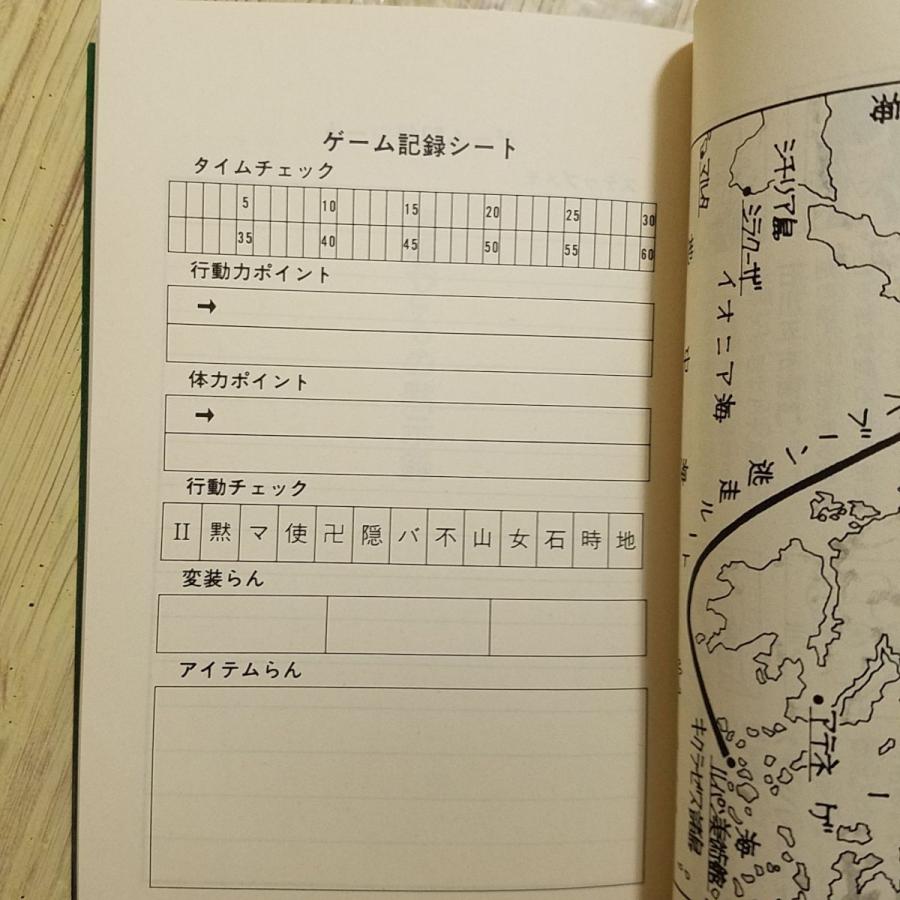 ゲーム記録シート
タイムチェック
5 10 15 20 25 30
35 40 45 50 55 60
行動力ポイント
➞
体力ポイント
➞
行動チェック
II 黙 マ 使 卍 隠 バ 不 山 女 石 時 地
変装らん
アイテムらん
海
シチリア島
シラクーザ
マルタ
イオニア海
逃走ルート
アテネ
キクラーゼス諸島
ルパン美術館
海
ゲ
ー